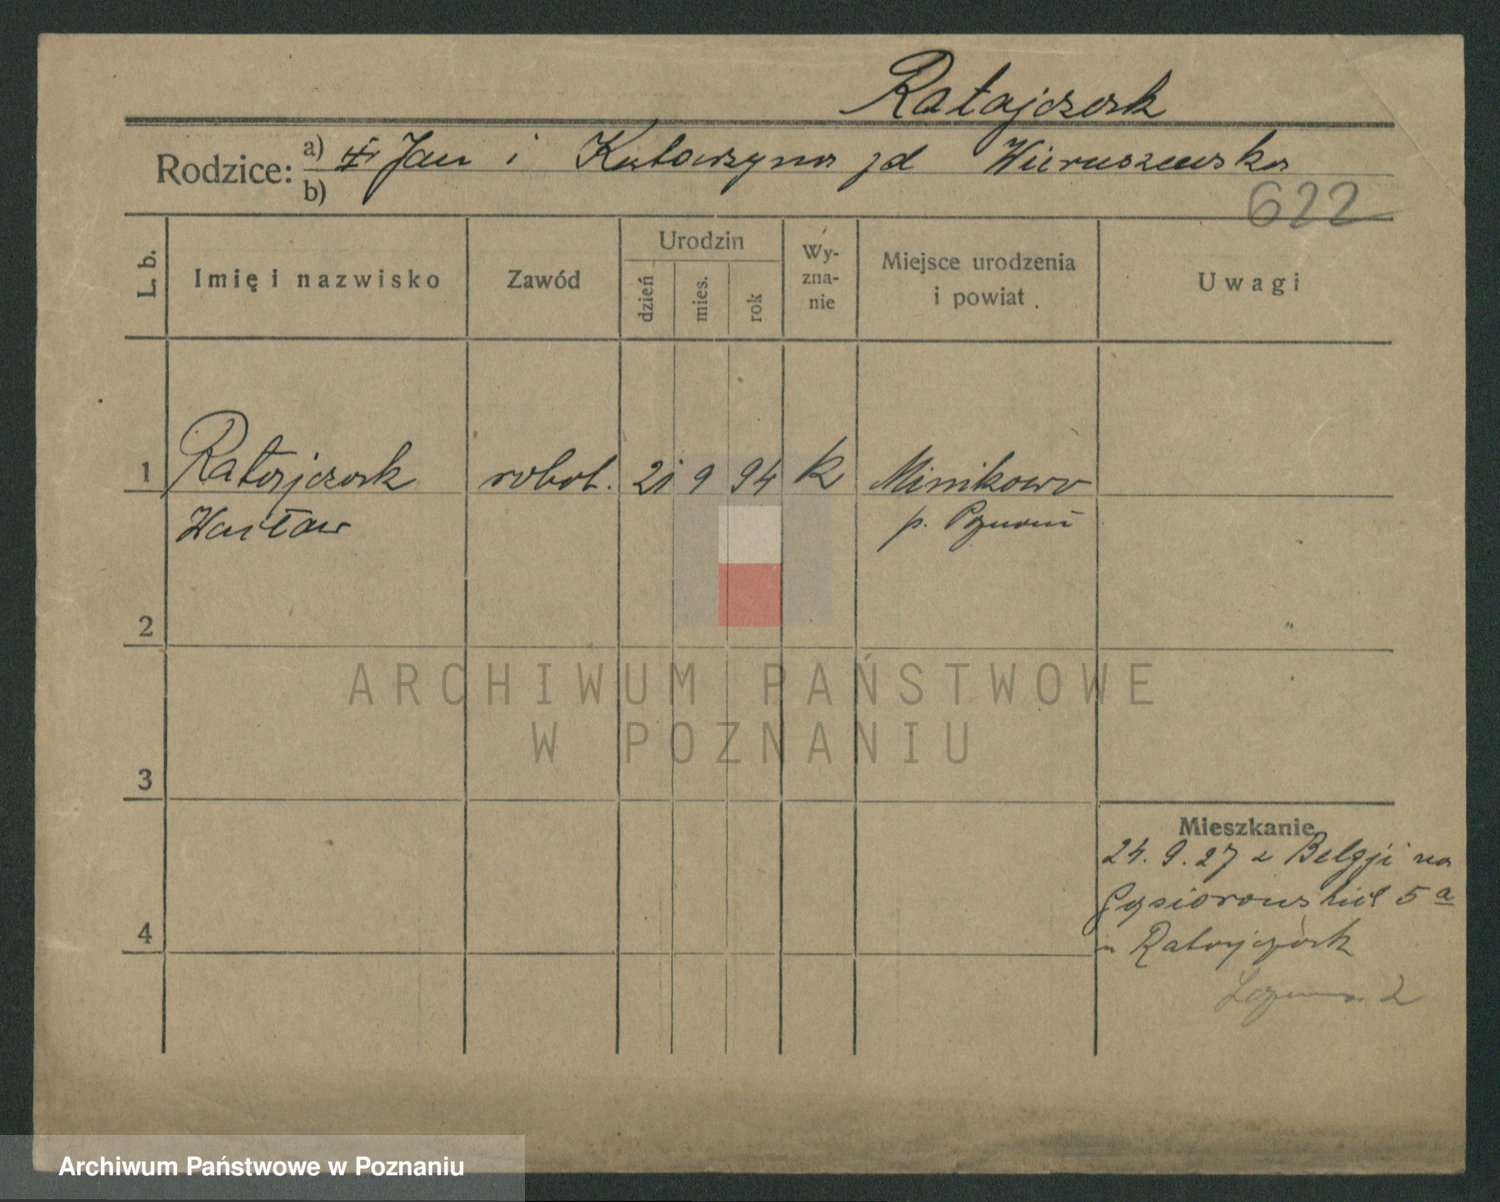 Ratajczak
Rodzice: a) Jan i Katarzyna zd Wieruszewska
b)
622
L. b.
Imię i nazwisko
Zawód
Urodzin
dzień
mies.
rok
Wy-
zna-
nie
Miejsce urodzenia
i powiat
Uwagi
1 Ratajczak robot. 21 9 94 k Minikowo
Wacław p. Poznań
2
ARCHIWUM PAŃSTWOWE
W POZNANIU
3
Mieszkanie
24.9.27 z Belgji na
Gąsiorowskich 5a
u Ratajczak
4
2
Archiwum Państwowe w Poznaniu